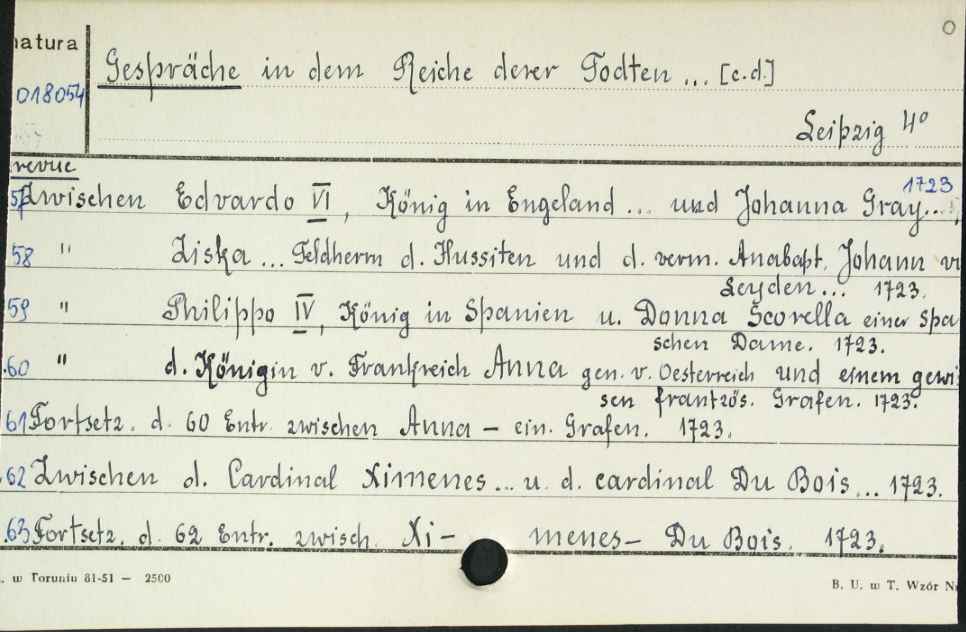 natura
Gespräche in dem Reiche derer Todten ... [c.d.]
018054
Leipzig 4º
revue
1723
57 Zwischen Edvardo VI, König in Engeland ... und Johanna Gray...,
58 " Ziska ... Feldherrn d. Hussiten und d. verm. Anabapt. Johann v
Leyden... 1723.
59 " Philippo IV, König in Spanien u. Donna Scorella einer Spa
schen Dame. 1723.
.60 " d. Königin v. Frankreich Anna gen. v. Oesterreich und einem gewi
sen frantzös. Grafen. 1723.
61 Fortsetz. d. 60 Entr. zwischen Anna – ein. Grafen. 1723.
.62 Zwischen d. Cardinal Ximenes... u. d. cardinal Du Bois... 1723.
.63 Fortsetz. d. 62 Entr. zwisch. Xi- menes – Du Bois. 1723.
. w Toruniu 81-51 – 2500
B. U. w T. Wzór N